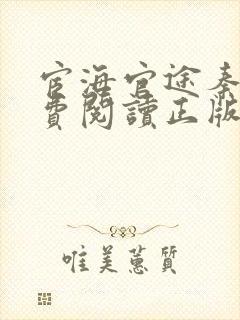 宦海官途秦
費閱讀正版
唯美蕙質